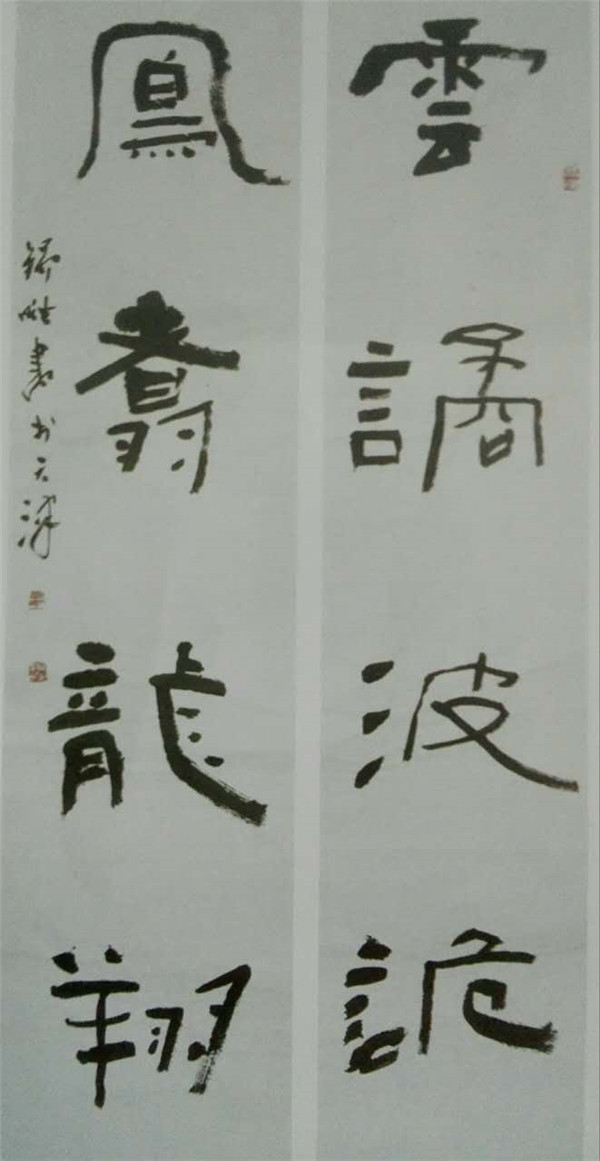 雲譎波詭
鳳翥龍翔
書於天津